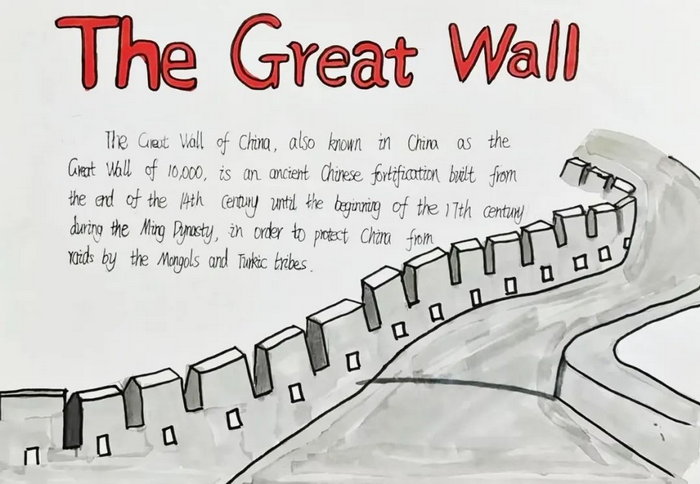 The Great Wall
The Great Wall of China, also known in China as the
Great Wall of 10,000, is an ancient Chinese fortification built from
the end of the 14th century until the beginning of the 17th century
during the Ming Dynasty, in order to protect China from
raids by the Mongols and Turkic tribes.